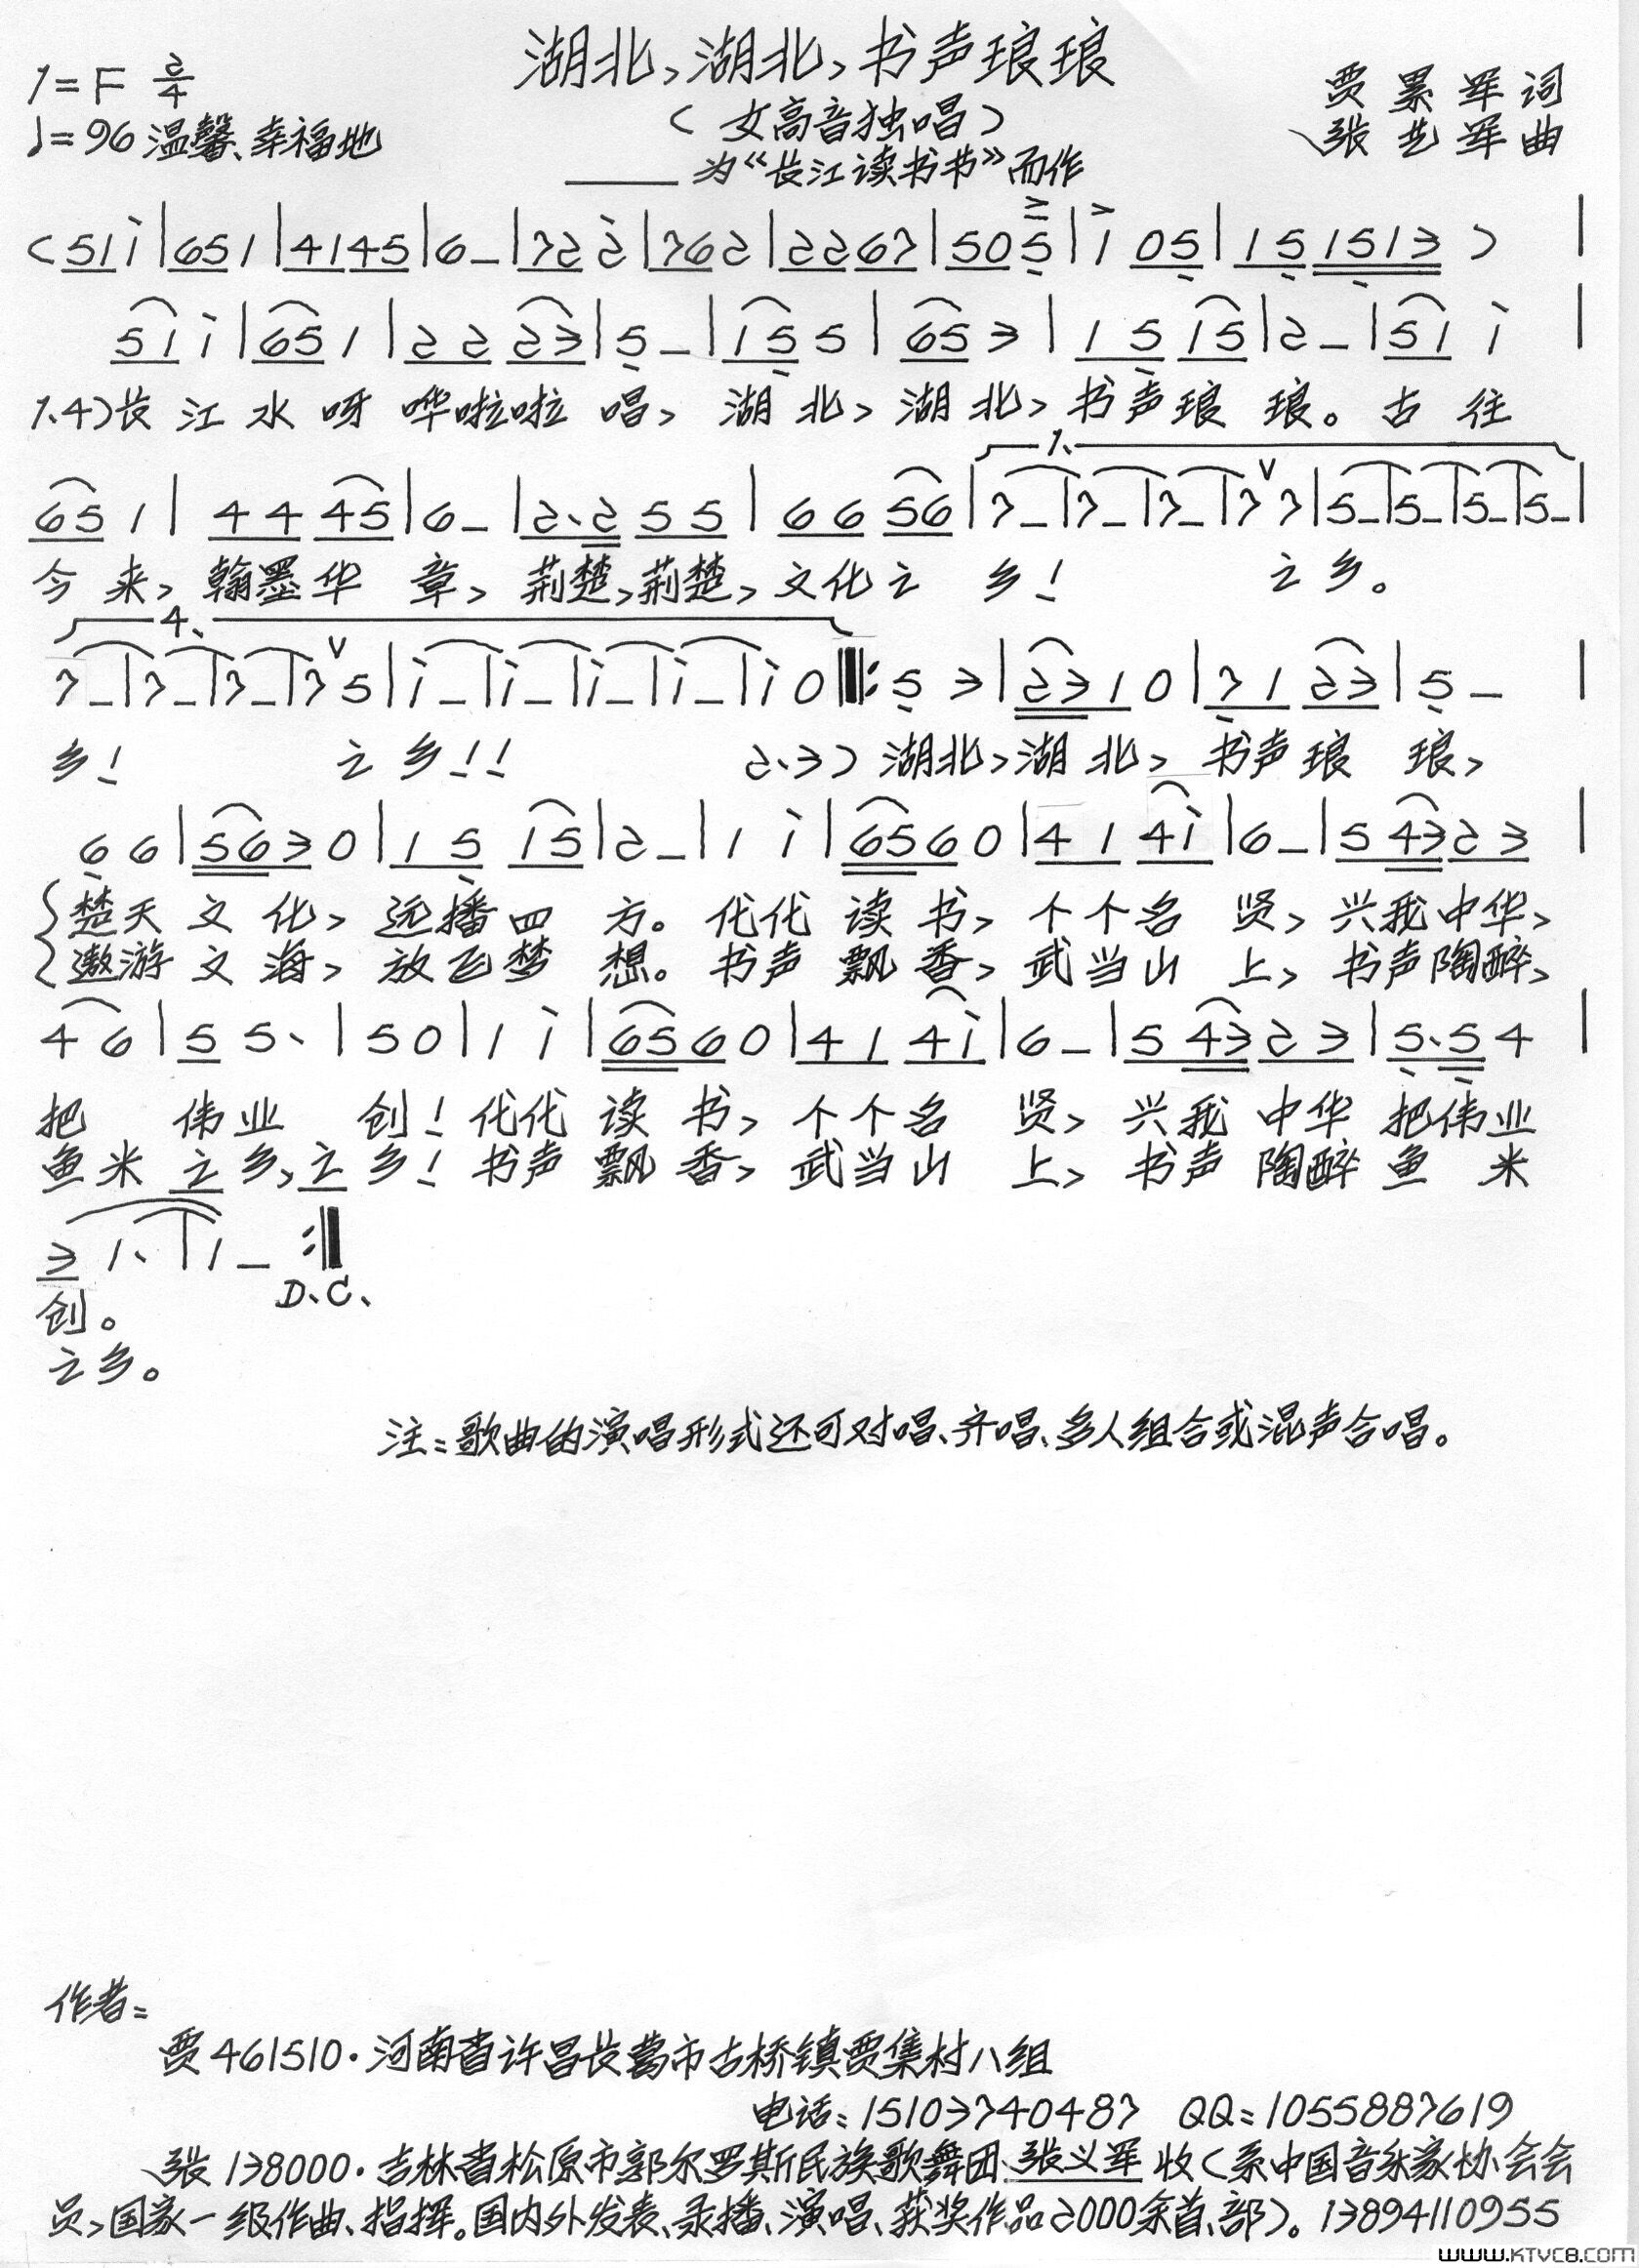 湖北,湖北,书声琅琅
1=F 2/4
贾累军 词
♩=96 温馨、幸福地
(女高音独唱)
张艺军 曲
——为“长江读书节”而作
(511|651|4145|6-|722|762|2267|505|1 05|151513)|
511|651|2223|5-|155|653|1515|2-|511|
1.4)长江水呀哗啦啦唱,湖北,湖北,书声琅琅。古往
1.
651|4445|6-|2.255|6656|7-|7-|7-|7∨7|5-|5-|5-|5-|
今来,翰墨华章,荆楚,荆楚,文化之乡! 之乡。
4.
7-|7-|7-|7∨5|1-|1-|1-|1-|10‖:53|2310|7123|5-|
乡! 之乡!! 2.3)湖北,湖北,书声琅琅,
66|5630|1515|2-|11|6560|4141|6-|54323|
楚天文化,远播四方。代代读书,个个名贤,兴我中华,
遨游文海,放飞梦想。书声飘香,武当山上,书声陶醉,
46|55.|50|11|6560|4141|6-|54323|5.54|
把伟业创!代代读书,个个名贤,兴我中华把伟业
鱼米之乡,之乡!书声飘香,武当山上,书声陶醉鱼米
31.|1-:‖
D.C.
创。
之乡。
注:歌曲的演唱形式还可对唱、齐唱、多人组合或混声合唱。
作者:
贾461510·河南省许昌长葛市古桥镇贾集村八组
电话:15103740487 QQ:1055887619
张138000·吉林省松原市郭尔罗斯民族歌舞团张义军收(系中国音乐家协会会
员,国家一级作曲、指挥。国内外发表、录播、演唱、获奖作品2000余首、部)。13894110955
www.KTVC8.COM